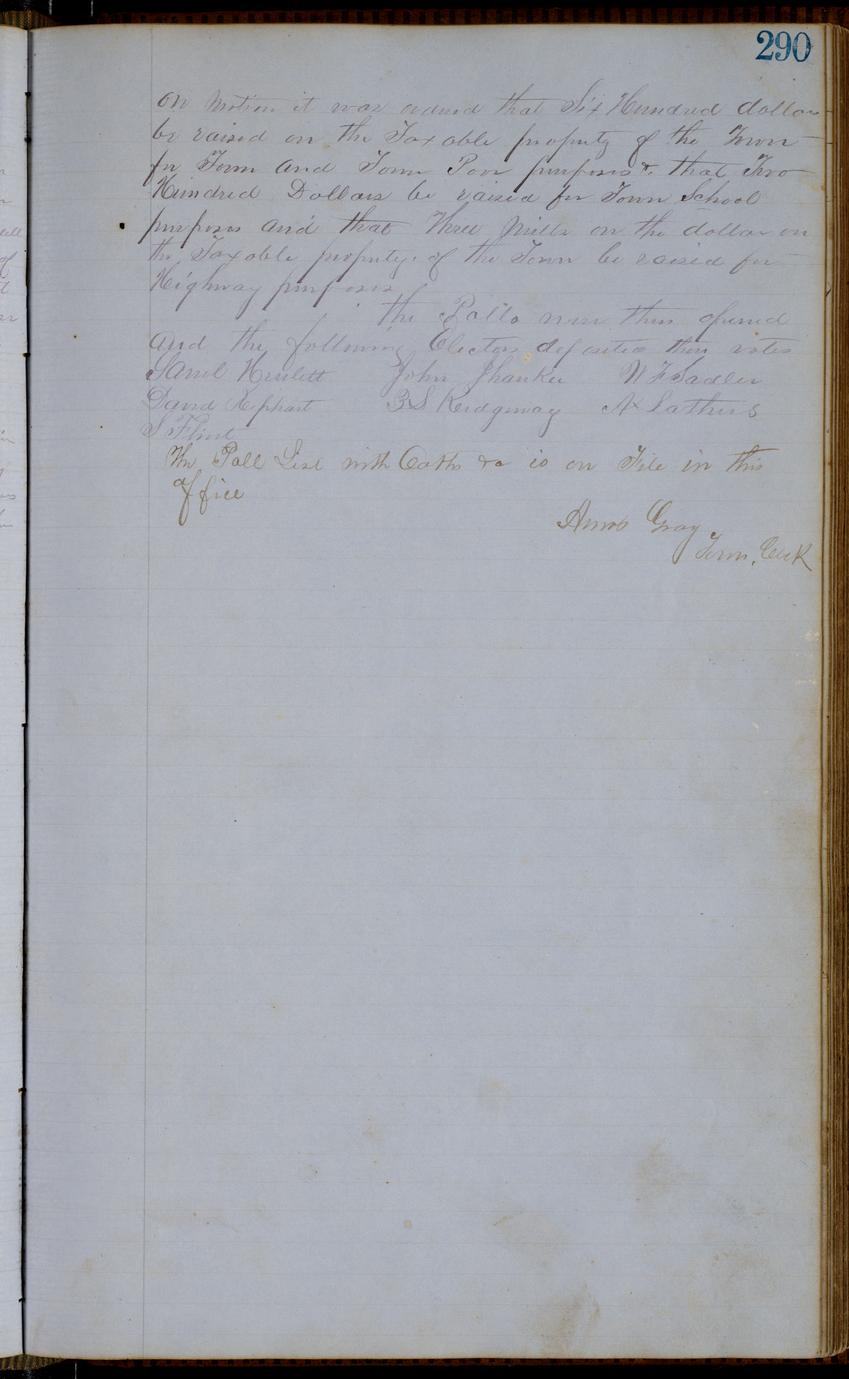 290
on motion it was ordered that Six Hundred dollars
be raised on the Taxable property of the Town
for Town and Town Poor purposes & that Two
Hundred Dollars be raised for Town School
purposes and that Three Mills on the dollar on
the Taxable property of the Town be raised for
Highway purposes
the Polls were then opened
and the following Electors deposited their votes
Saml Hewlett John Shanker N F Sadler
David Rephart B S Ridgway A Lathers
S Flint
The Poll List with Oaths &c is on File in this
office
Amos Gray
Town Clerk